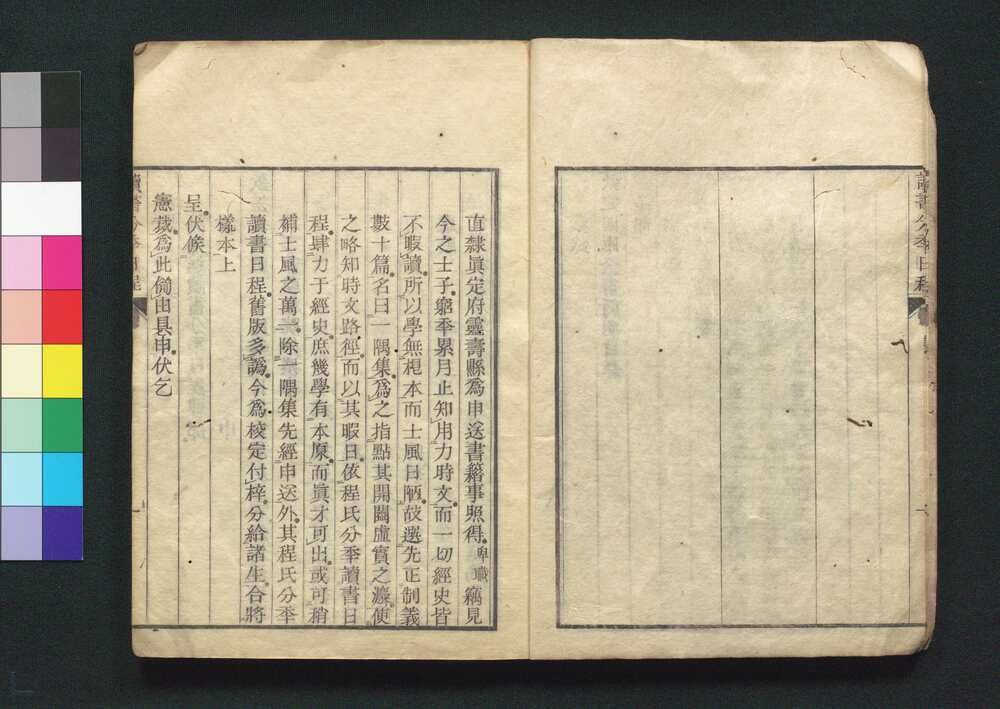 讀書分季日程
直隸眞定府靈壽縣爲申送書籍事照得卑職竊見
今之士子窮季累月止知用力時文而一切經史皆
不暇讀所以學無根本而士風日陋故選先正制義
數十篇名曰一隅集爲之指點其開闔虛實之灋使
之略知時文路徑而以其暇日依程氏分季讀書日
程肆力于經史庶幾學有本原而眞才可出或可稍
補士風之萬一除一隅集先經申送外其程氏分季
讀書日程舊版多譌今爲校定付梓分給諸生合將
樣本上
呈伏候
憲裁爲此備由具申伏乞
讀書分季日程